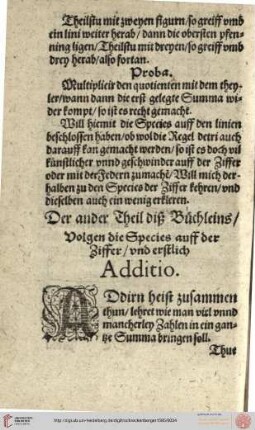 Theilstu mit zweyen figurn/so greiff vmb
ein lini weiter herab/dann die obersten pfen-
ning ligen/Theilstu mit dreyen/so greiff vmb
drey herab/also fortan.
Proba.
Multiplicir den quotienten mit dem they-
ler/wann dann die erst gelegte Summa wi-
der kompt/so ist es recht gemacht.
Will hiemit die Species auff den linien
beschlossen haben/ob wol die Regel detri auch
darauff kan gemacht werden/so ist es doch vil
künstlicher vnnd geschwinder auff der Ziffer
oder mit der Federn zumachẽ/Will mich der-
halben zu den Species der Ziffer kehren/vnd
dieselben auch ein wenig erkleren.
Der ander Theil diß Büchleins/
Volgen die Species auff der
Ziffer/vnd erstlich
Additio.
ADdirn heist zusammen
thun/lehret wie man vil vnnd
mancherley Zahlen in ein gan-
tze Summa bringen soll.
Thue